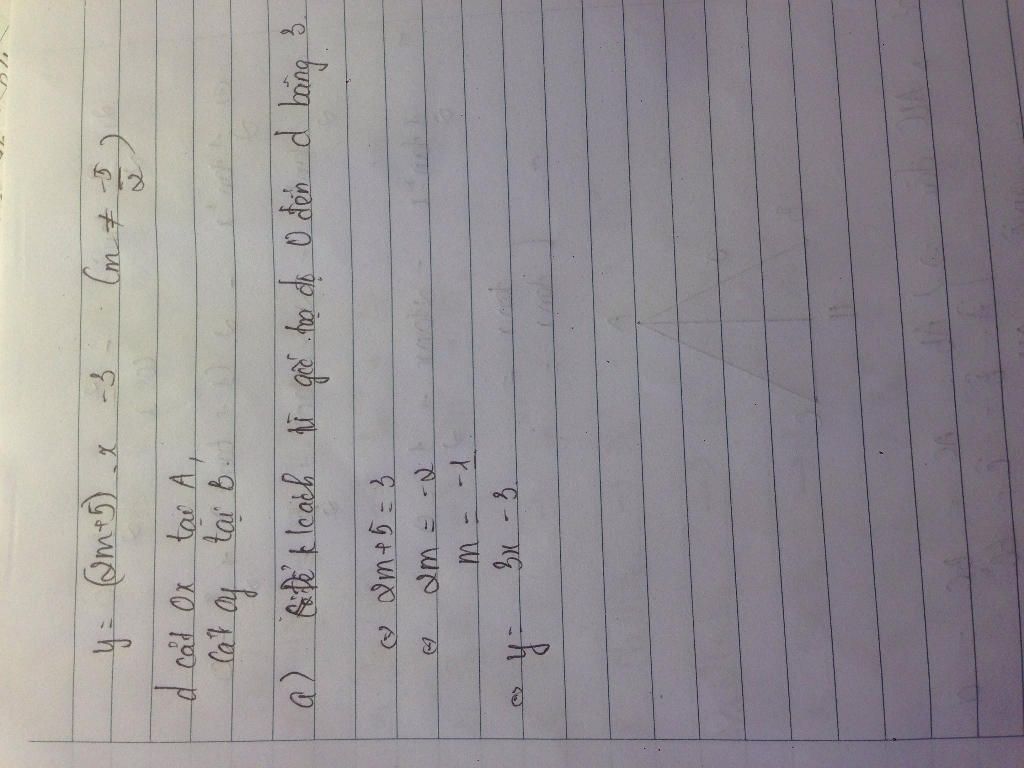 y = (2m+5).x - 3 - (m ≠ -5/2)
d cắt Ox tại A,
cắt Oy tại B.
a) Để k/cách từ gốc tọa độ O đến d bằng 3
⇔ 2m+5 = 3
⇔ 2m = -2
m = -1
⇔ y = 3x - 3